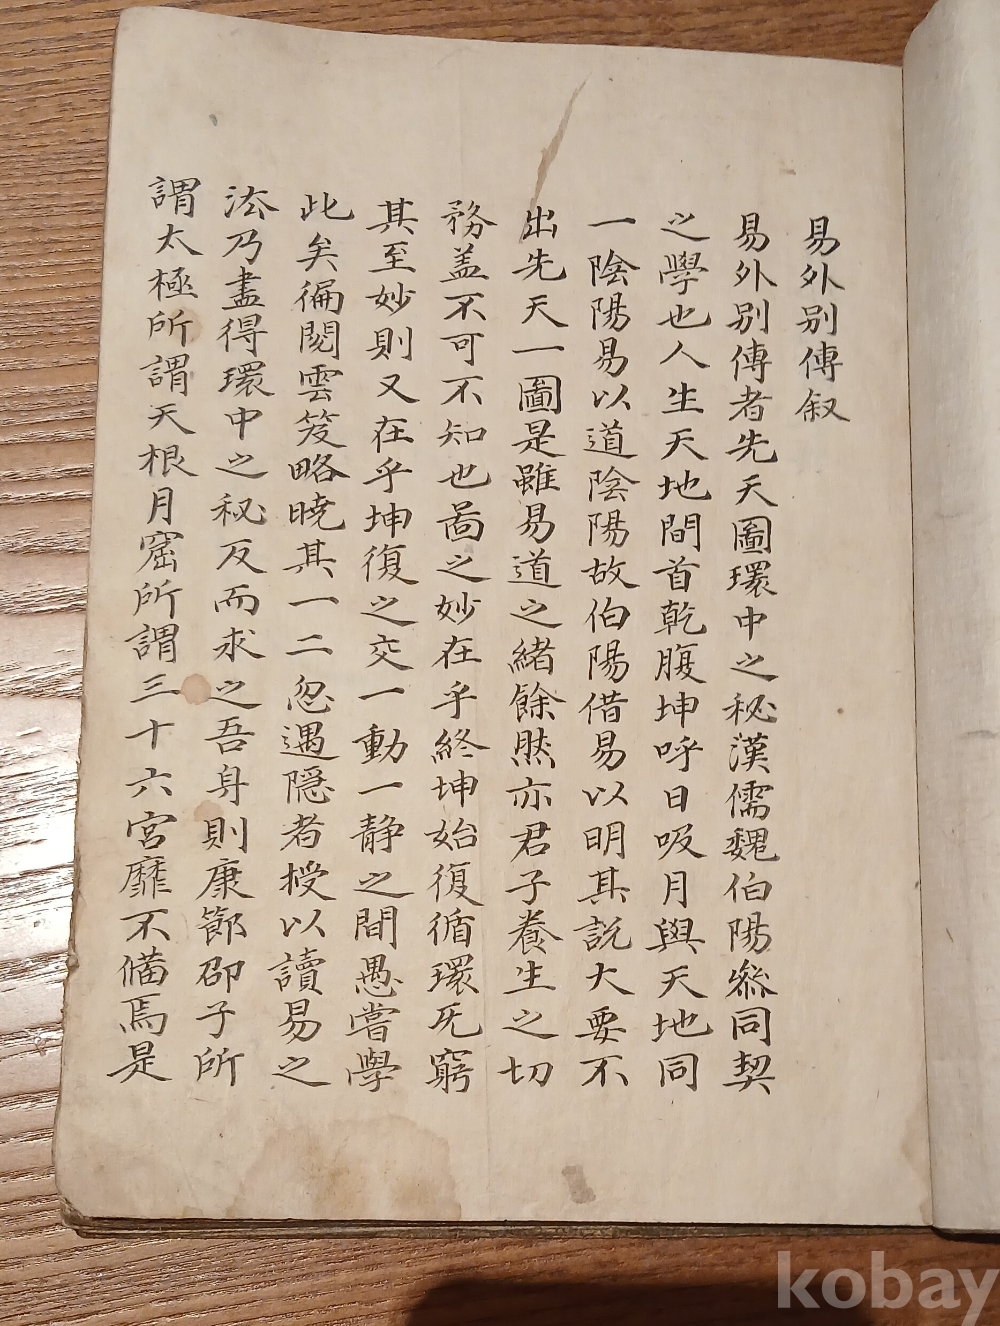 易外别傳叙
易外别傳者先天圖環中之秘漢儒魏伯陽叅同契
之學也人生天地間首乾腹坤呼日吸月與天地同
一陰陽易以道陰陽故伯陽借易以明其說大要不
出先天一圖是雖易道之緒餘然亦君子養生之切
務盖不可不知也啚之妙在乎終坤始復循環无窮
其至妙則又在乎坤復之交一動一静之間愚嘗學
此矣徧閱雲笈略曉其一二忽遇隠者授以讀易之
法乃盡得環中之秘反而求之吾身則康節邵子所
謂太極所謂天根月窟所謂三十六宮靡不備焉是
kobay